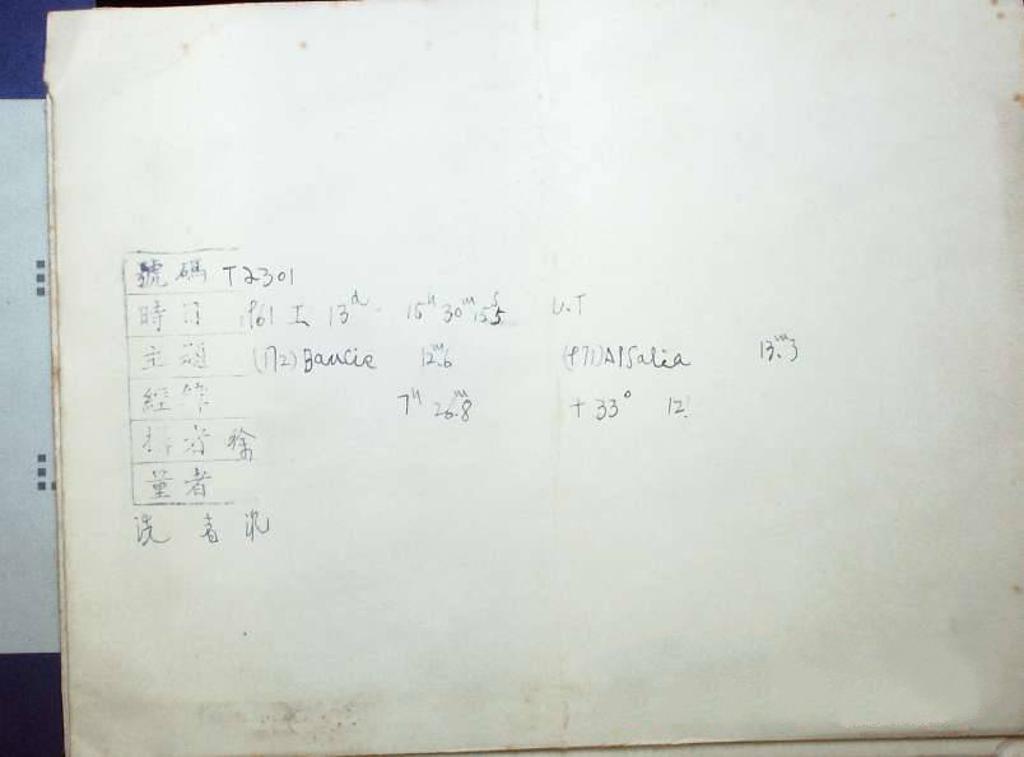 號碼 T2301
時日 1961 I 13ᵈ 15ʰ 30ᵐ 15ˢ.5 U.T
主題 (172) Baucis 12ᵐ.6 (971) Alsatia 13ᵐ.3
經緯 7ʰ 26ᵐ.8 +33° 12′
拍者 徐
量者
洗者